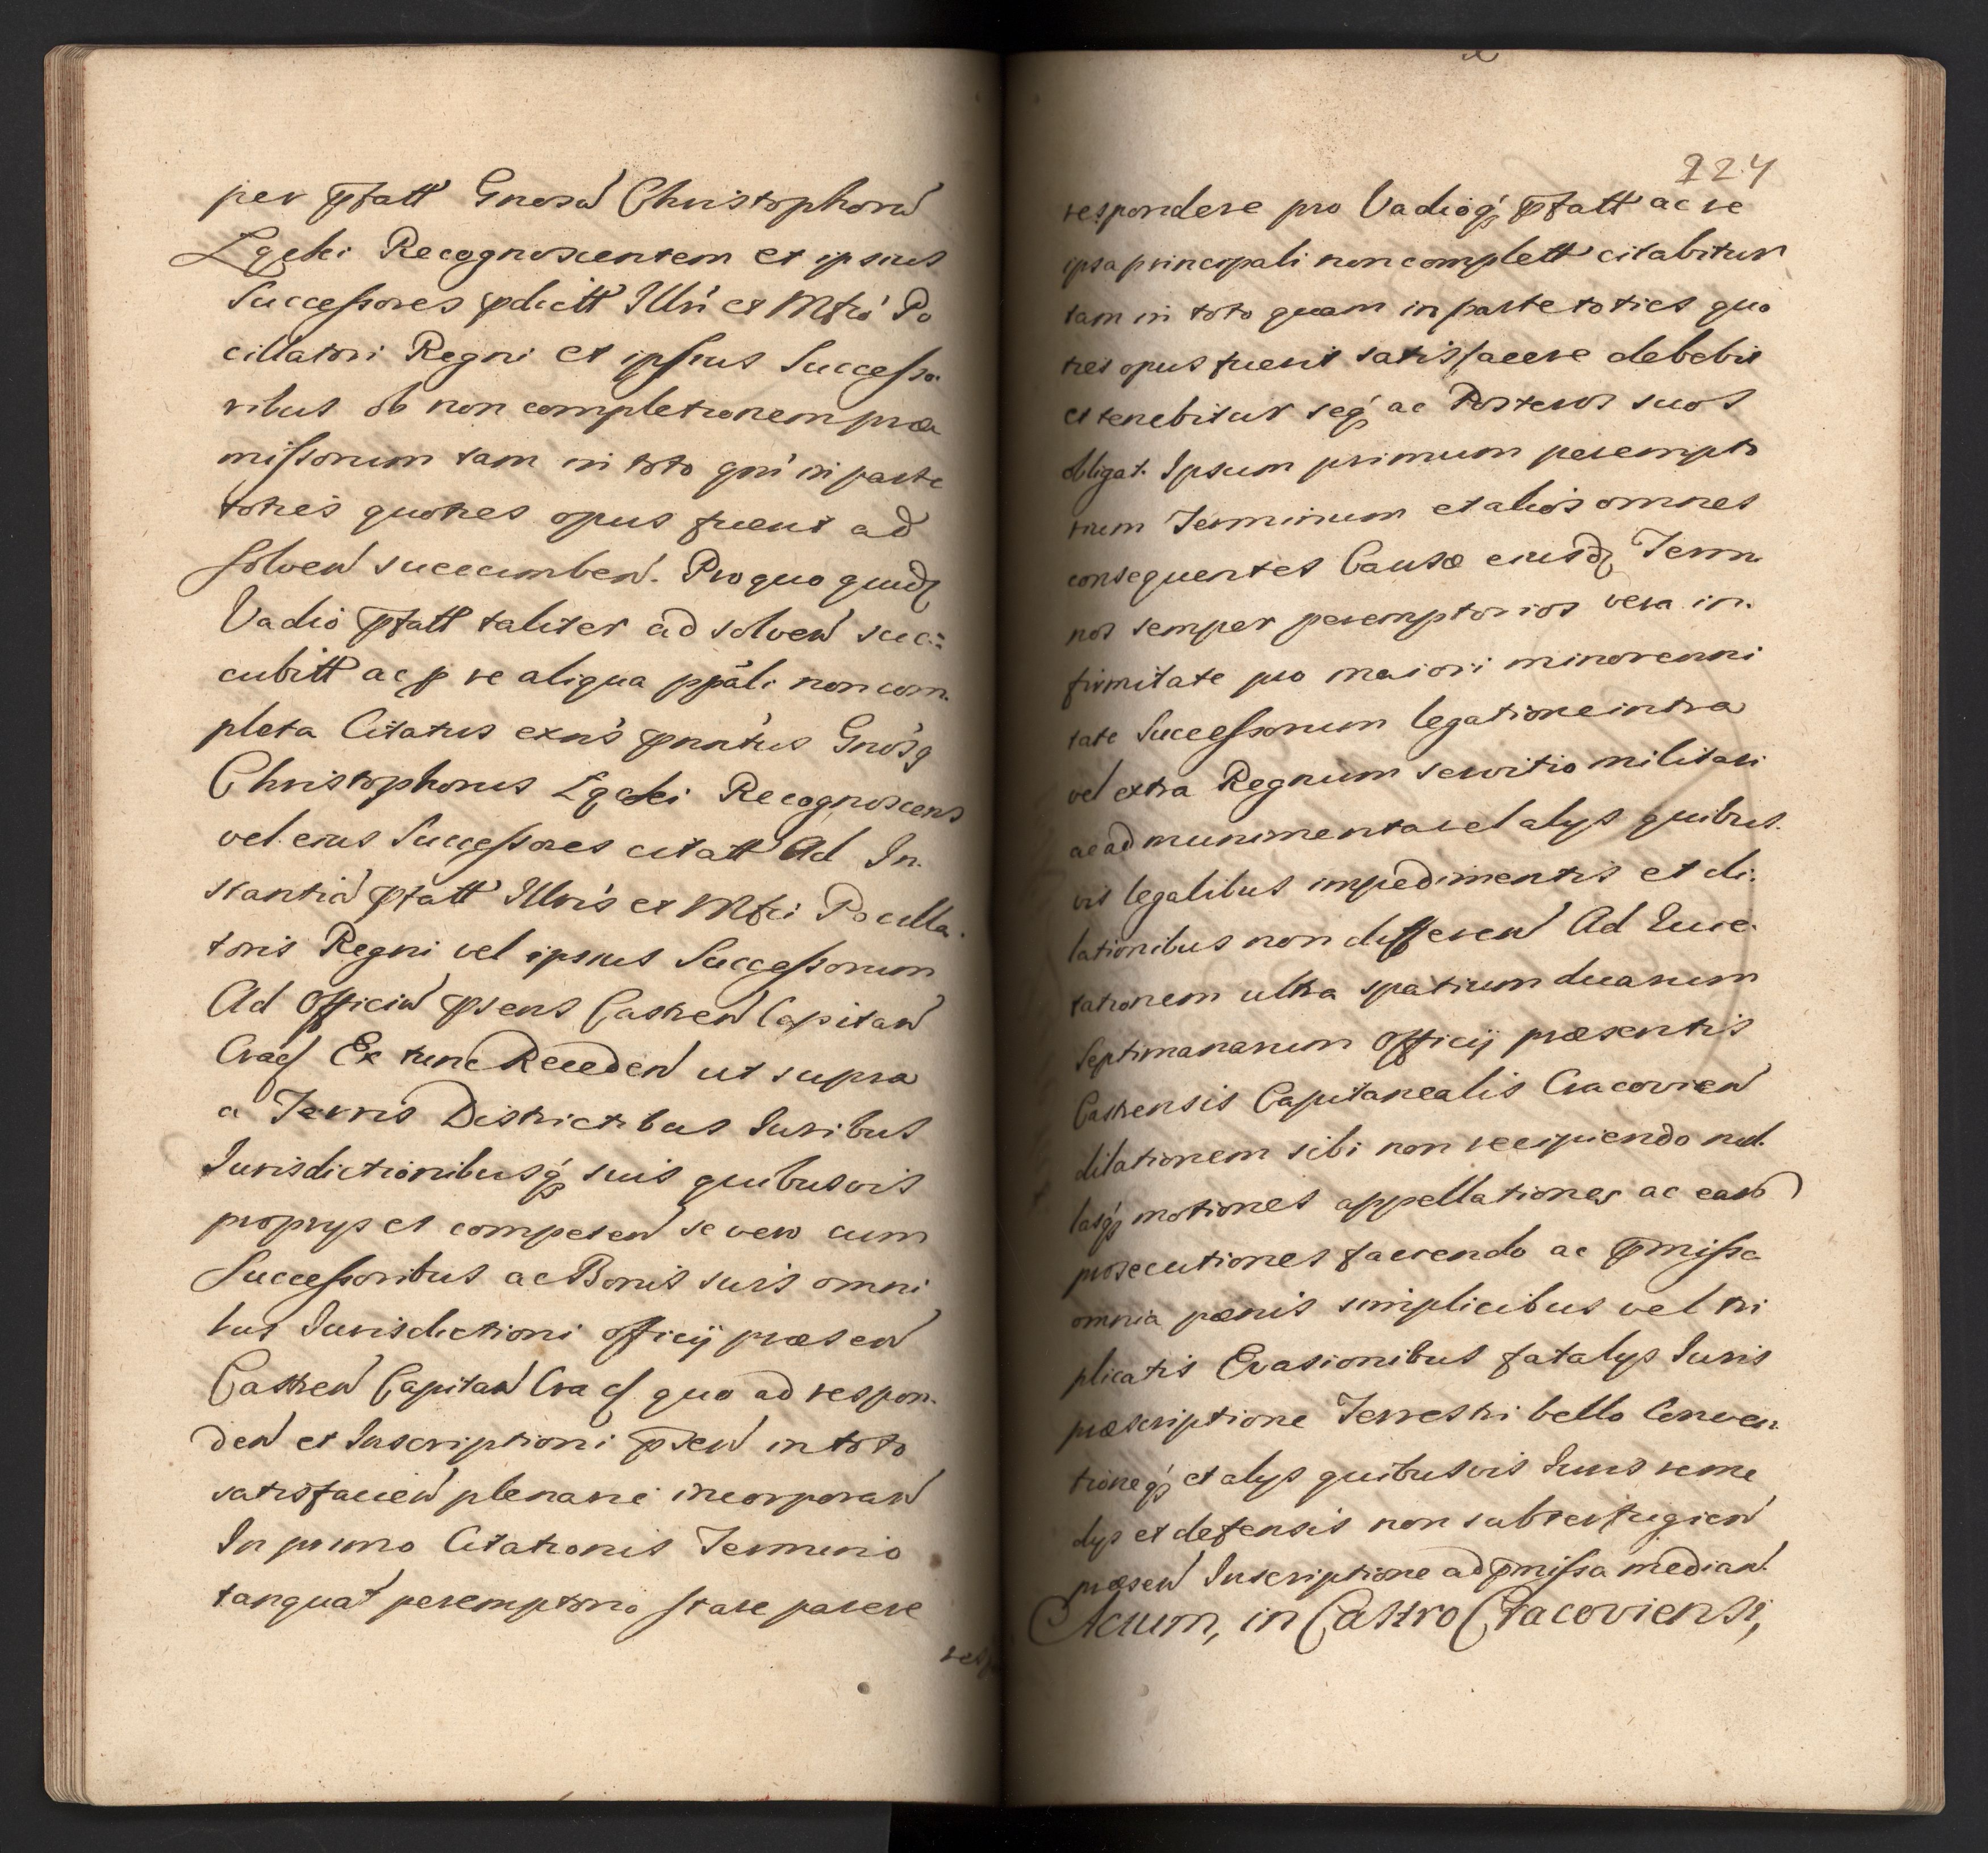 per pfatt Gnosū Christophorū
Zgeki Recognoscentem et ipsius
Successores pdictt Illri et Mfco Po
cillatori Regni et ipsius Successo-
ribus ob non completionem præ
missorum tam in toto qm in parte
toties quoties opus fuerit ad
solven succumben. Pro quo quidq
Vadio pfatt taliter ad solven suc=
cubitt ac p re aliqua ppali non com-
pleta Citatus exns pnntus Gnosq
Christophorus Recognoscens
vel eius Successores citatt Ad In-
stantiā pfatt Illris et Mfci Pocilla-
toris Regni vel ipsius Successorum
Ad Officiū psens Castren Capitan
Crac Ex tunc Receden ut supra
a Terris Districtibus Iuribus
Iurisdictionibusq suis quibusvis
proprys et competen se vero cum
Successoribus ac Bonis suis omni
bus Iurisdictioni officij præsen
Castren Capitan Crac quo ad respon-
den et Inscriptioni psen in toto
satisfacien plenarie incorporan
In primo Citationis Termino
tanquam peremptorio stare parere
res
224
respondere pro Vadioq pfatt ac re
ipsa principali non complett citabitur
tam in toto quam in parte toties quo
ties opus fuerit satisfacere debebit
et tenebitur seq ac Posteros suos
obligat. Ipsum primum perempto
rium Terminum et alios omnes
consequentes Causæ eiusdq Termi
nos semper peremptorios vera in-
firmitate pro maiori minorenni
tate Successorum legatione intra
vel extra Regnum servitio militari
ac ad munimenta vel alys quibus-
vis legalibus impedimentis et di-
lationibus non differen Ad Euic-
tationem ultra spatium duarum
Septimanarum Officij præsentis
Castrensis Capitanealis Cracovien
dilationem sibi non recipiendo nul-
lasq motiones appellationes ac earū
prosecutiones faciendo ac pmissa
omnia pænis simplicibus vel tri
plicatis Evasionibus fatalys Iuris
præscriptione Terrestri bello Conven-
tioneq et alys quibusvis Iuris reme
dys et defensis non subterfugien
præsen Inscriptione ad pmissa median.
Actum, in Castro Cracoviensi,